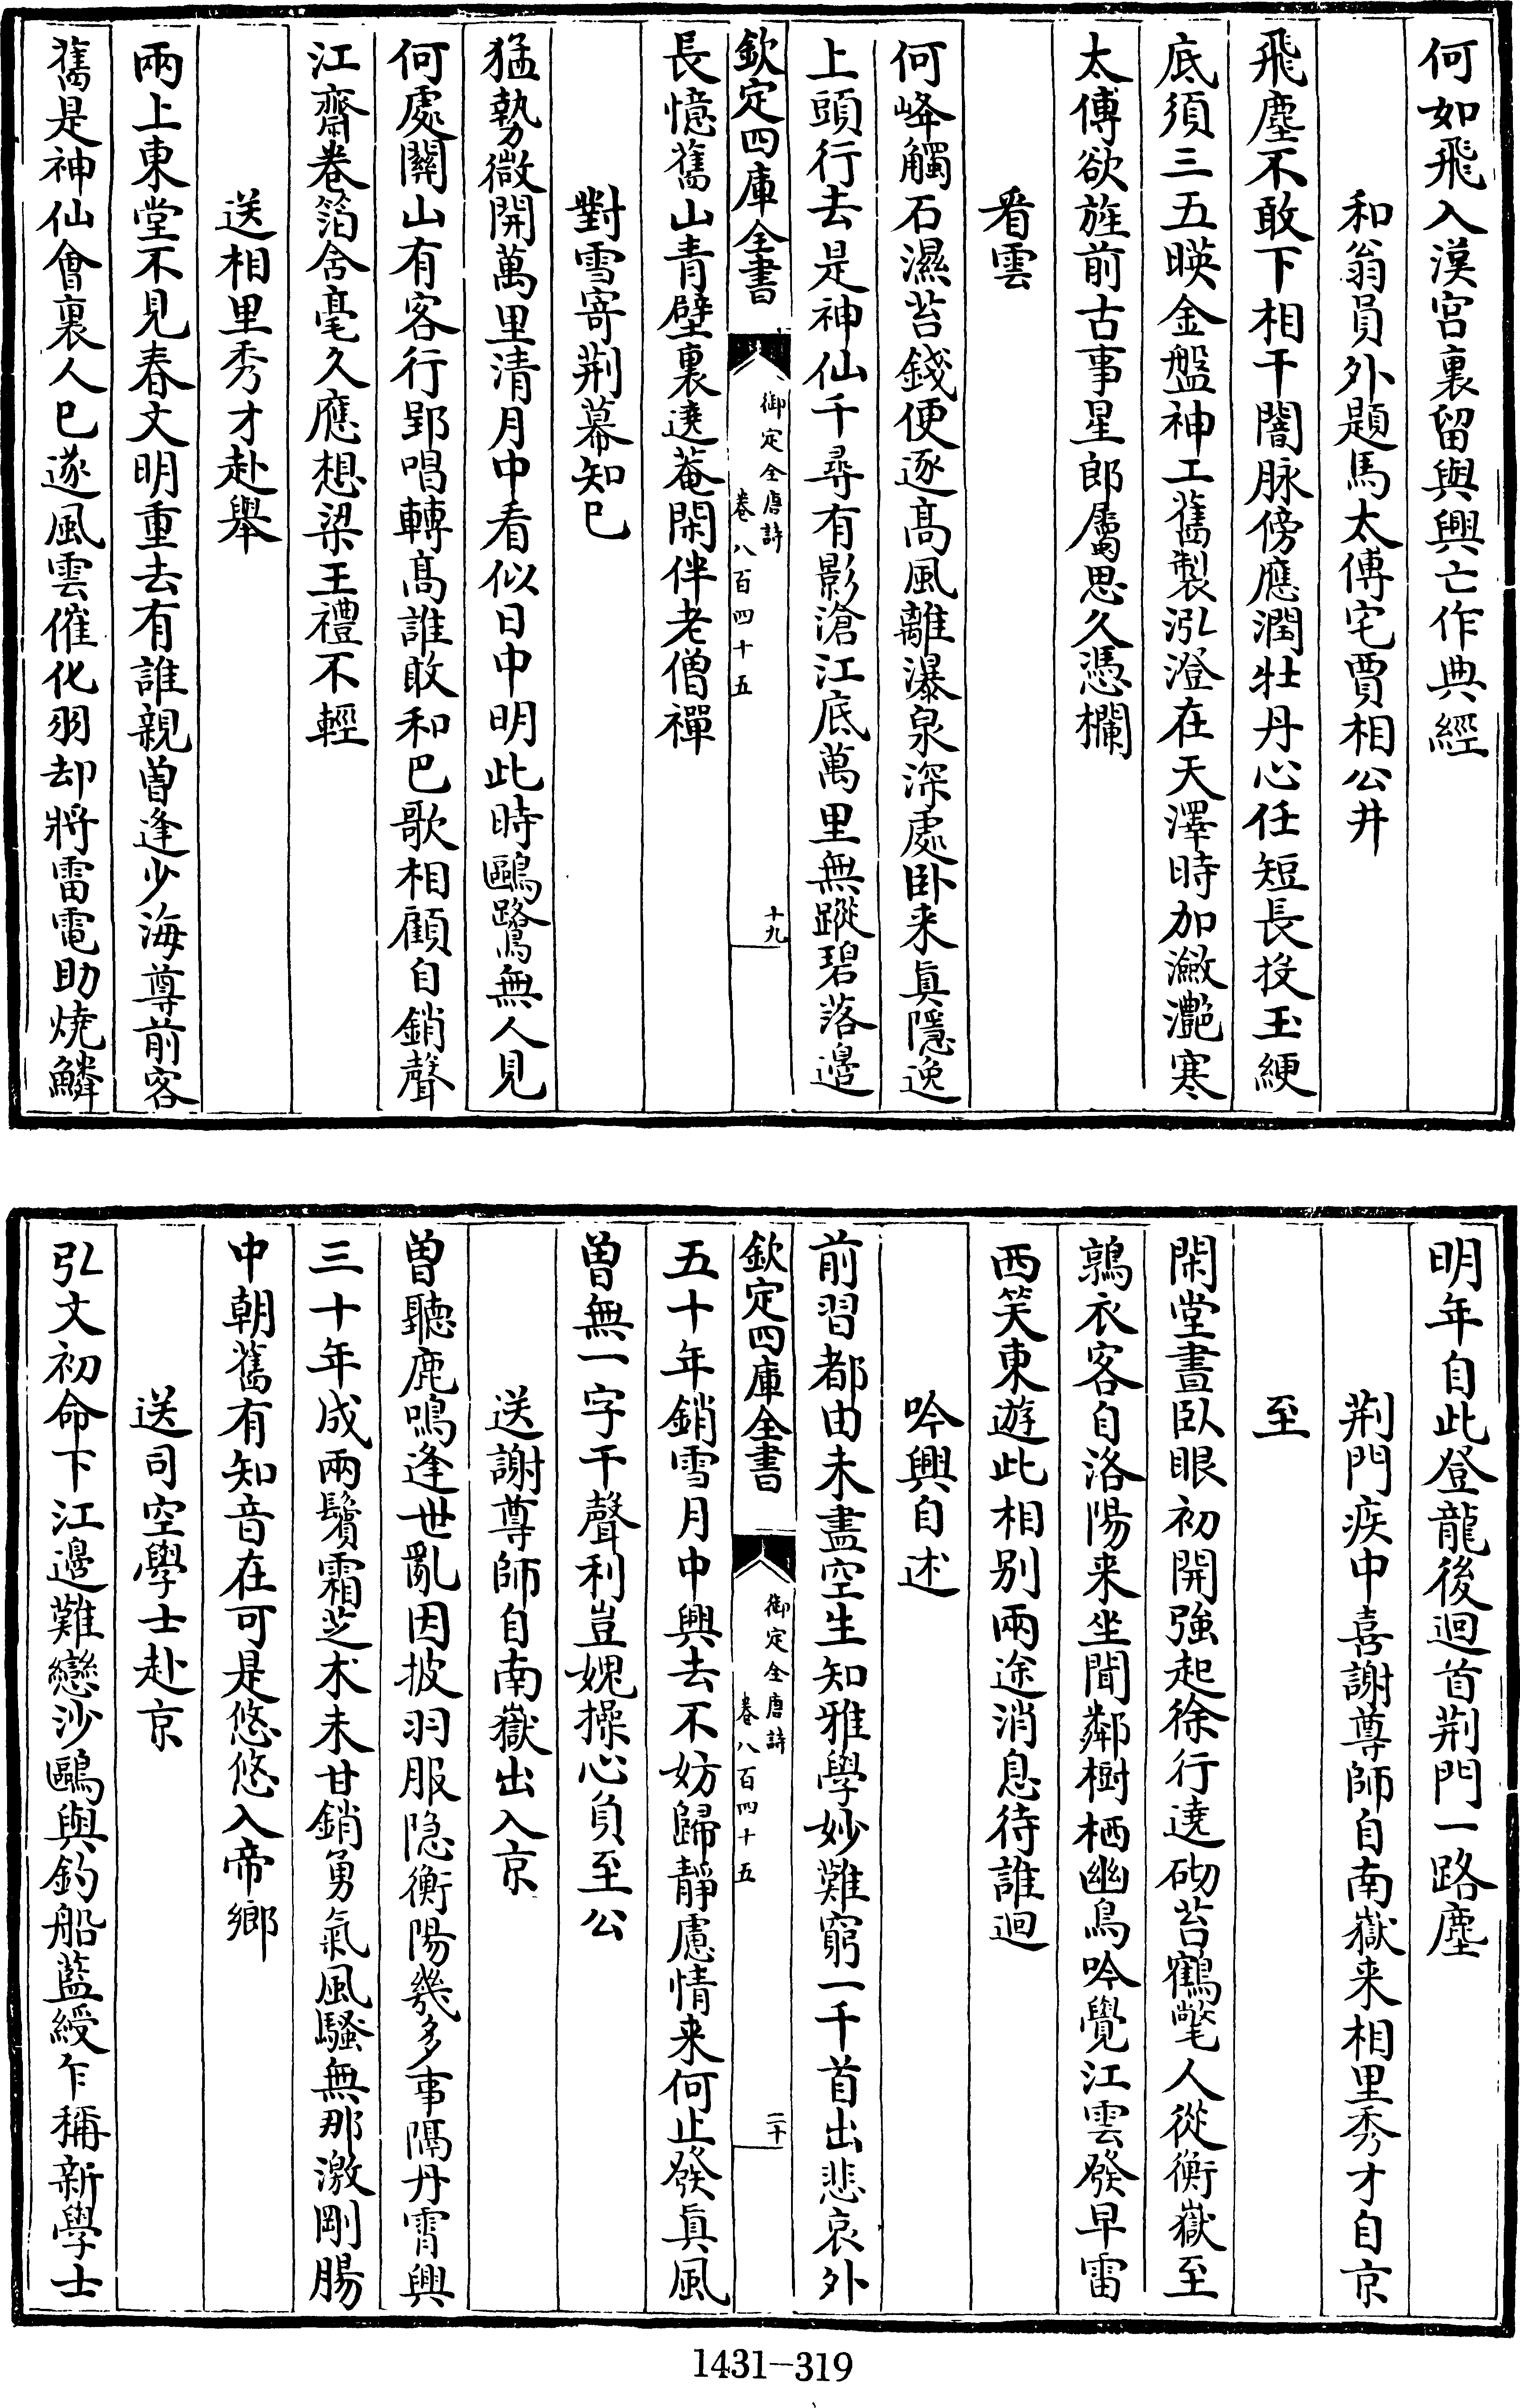 何如飛入漢宮裏留與興亡作典經
和翁員外題馬太傅宅賈相公井
飛塵不敢下相干闇脉傍應潤牡丹心任短長投玉綆
底須三五映金盤神工舊製泓澄在天澤時加瀲灧寒
太傅欲旌前古事星郎屬思久憑欄
看雲
何峰觸石濕苔錢便逐髙風離瀑泉深處卧来眞隱逸
上頭行去是神仙千尋有影滄江底萬里無蹤碧落邉
欽定四庫全書
御定全唐詩
卷八百四十五
十九
長憶舊山青壁裏遶菴閑伴老僧禪
對雪寄荆幕知已
猛勢微開萬里清月中看似日中明此時鷗鷺無人見
何處關山有客行郢唱轉髙誰敢和巴歌相顧自銷聲
江齋卷箔含毫久應想梁王禮不輕
送相里秀才赴舉
兩上東堂不見春文明重去有誰親曽逢少海尊前客
舊是神仙會裏人已遂風雲催化羽却將雷電助燒鱗
明年自此登龍後迴首荆門一路塵
荆門疾中喜謝尊師自南嶽来相里秀才自京
至
閑堂晝臥眼初開強起徐行遶砌苔鶴氅人從衡嶽至
鶉衣客自洛陽来坐聞鄰樹栖幽鳥吟覺江雲發早雷
西笑東遊此相别兩途消息待誰迴
吟興自述
前習都由未盡空生知雅學妙難窮一千首出悲哀外
欽定四庫全書
御定全唐詩
卷八百四十五
二十
五十年銷雪月中興去不妨歸靜慮情来何止發眞風
曽無一字干聲利豈媿操心負至公
送謝尊師自南嶽出入京
曽聽鹿鳴逢世亂因披羽服隐衡陽幾多事隔丹霄興
三十年成兩鬢霜芝朮未甘銷勇氣風騷無那激剛腸
中朝舊有知音在可是悠悠入帝鄉
送司空學士赴京
弘文初命下江邉難戀沙鷗與釣船藍綬乍稱新學士
1431-319